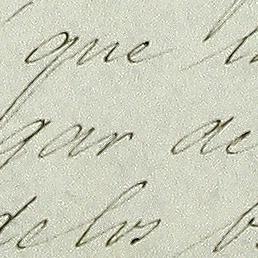 que l
gar de
de los b